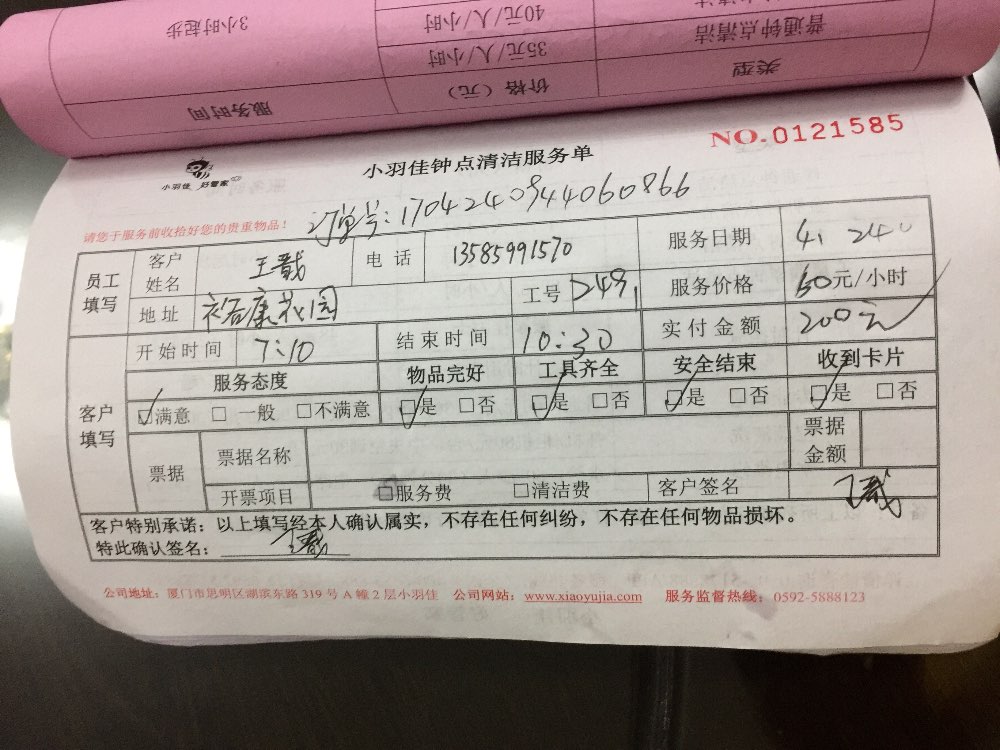 3小时起步
40元/人/小时
35元/人/小时
普通钟点清洁
服务时间
价格（元）
类型
NO.0121585
小羽佳 好管家
小羽佳钟点清洁服务单
请您于服务前收拾好您的贵重物品！
订单号:1704240944060866
员工填写
客户姓名 王戬 电话 13585991570 服务日期 4, 24
地址 裕康花园 工号 服务价格 60元/小时
开始时间 7:10 结束时间 10:30 实付金额 200元
客户填写
服务态度 物品完好 工具齐全 安全结束 收到卡片
☑满意 □一般 □不满意 ☑是 □否 ☑是 □否 ☑是 □否 ☑是 □否
票据 票据名称 票据金额
开票项目 □服务费 □清洁费 客户签名
客户特别承诺：以上填写经本人确认属实，不存在任何纠纷，不存在任何物品损坏。
特此确认签名：
公司地址：厦门市思明区湖滨东路319号A幢2层小羽佳 公司网站：www.xiaoyujia.com 服务监督热线：0592-5888123